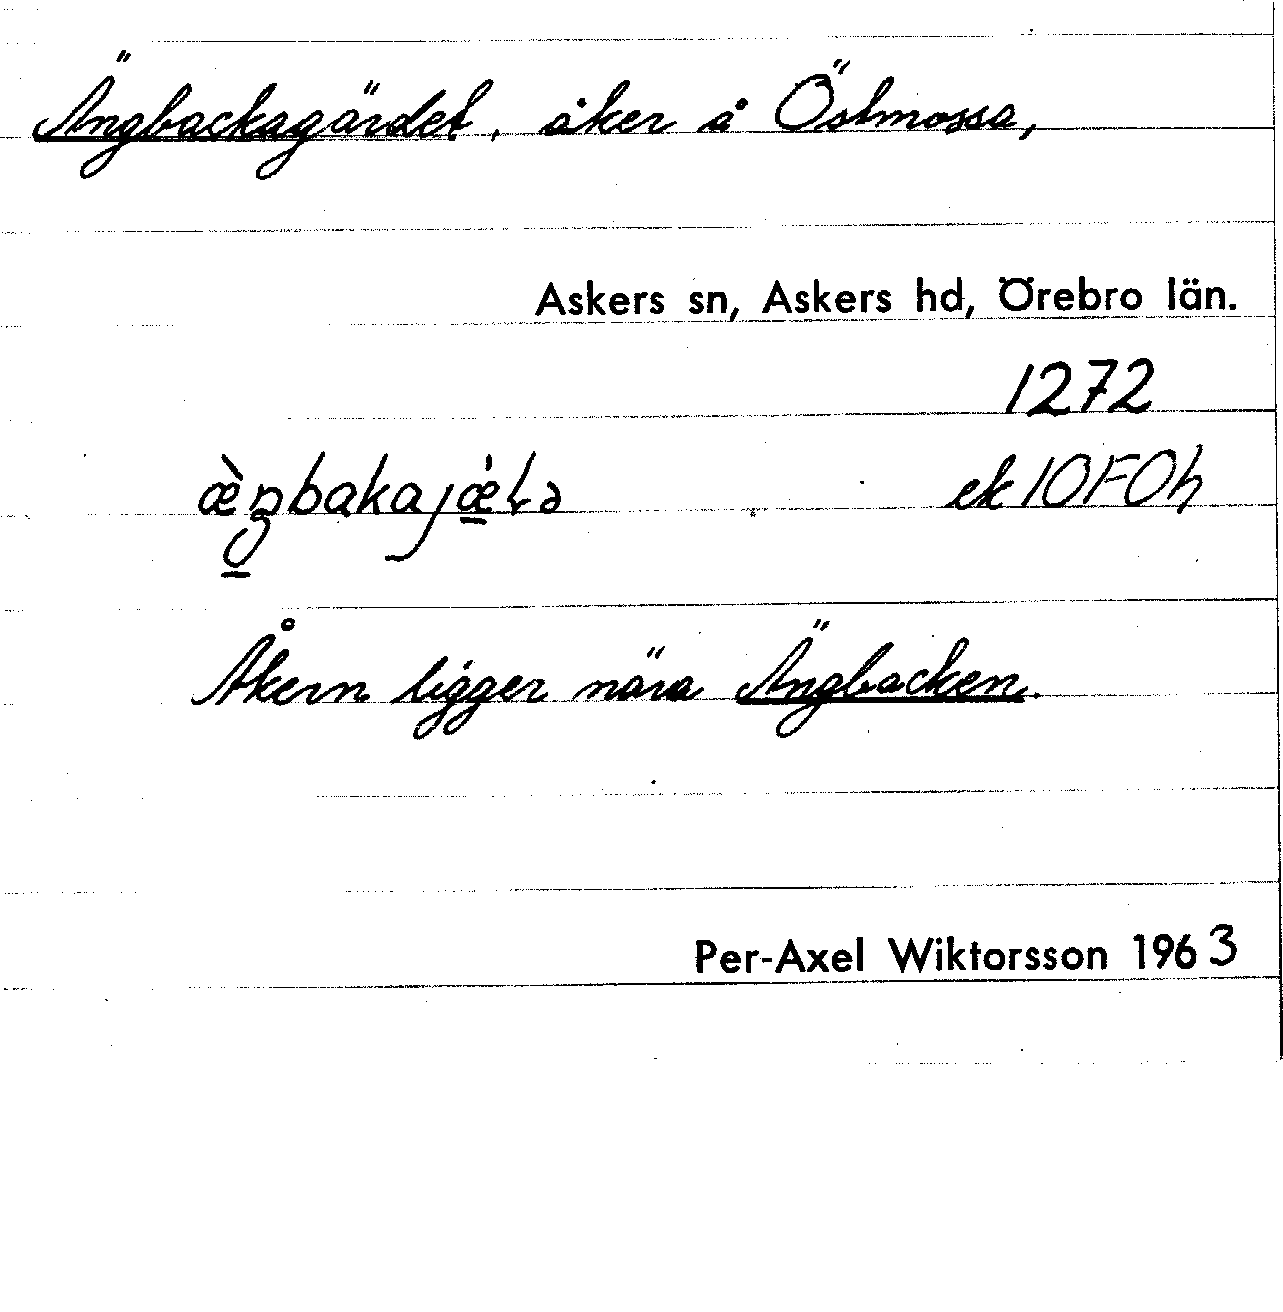 Ängbackagärdet, åker å Östmossa,
Askers sn, Askers hd, Örebro län.
1272
ek 10F0h
Åkern ligger nära Ängbacken.
Per-Axel Wiktorsson 1963